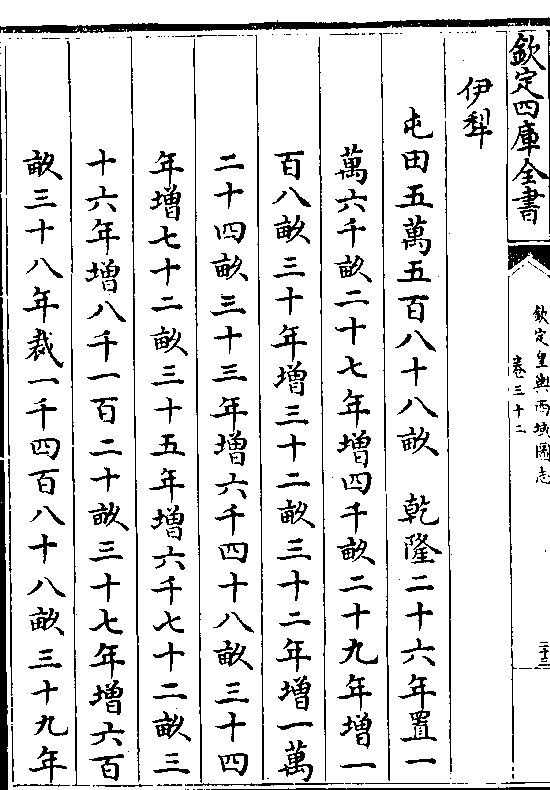 欽定四庫全書
欽定皇輿西域圖志
卷三十二
伊犁
屯田五萬五百八十八畝　乾隆二十六年置一
萬六千畝二十七年增四千畝二十九年增一
百八畝三十年增三十二畝三十二年增一萬
二十四畝三十三年增六千四十八畝三十四
年增七十二畝三十五年增六千七十二畝三
十六年增八千一百二十畝三十七年增六百
畝三十八年裁一千四百八十八畝三十九年